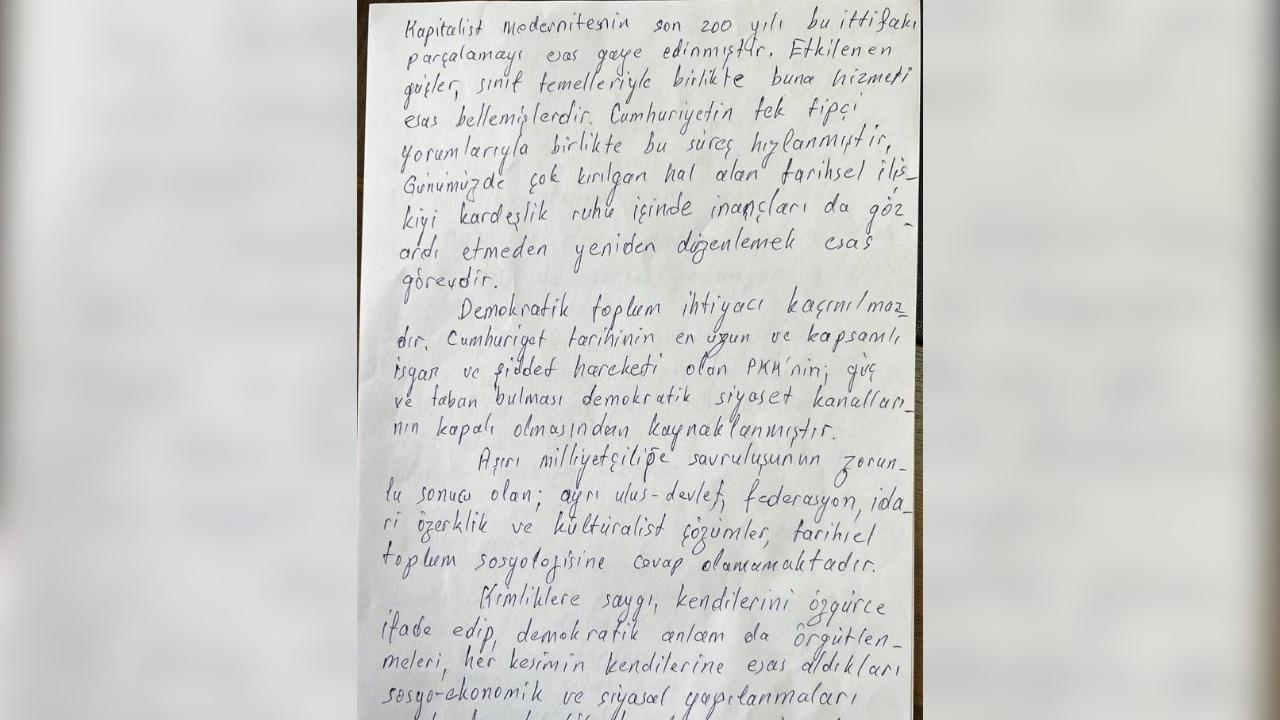 Kapitalist modernitenin son 200 yılı bu ittifakı
parçalamayı esas gaye edinmiştir. Etkilenen
güçler, sınıf temelleriyle birlikte buna hizmeti
esas bellemişlerdir. Cumhuriyetin tek tipçi
yorumlarıyla birlikte bu süreç hızlanmıştır.
Günümüzde çok kırılgan hal alan tarihsel iliş-
kiyi kardeşlik ruhu içinde inançları da göz
ardı etmeden yeniden düzenlemek esas
görevdir.
Demokratik toplum ihtiyacı kaçınılmaz-
dır. Cumhuriyet tarihinin en uzun ve kapsamlı
isyan ve şiddet hareketi olan PKK'nin; güç
ve taban bulması demokratik siyaset kanalları-
nın kapalı olmasından kaynaklanmıştır.
Aşırı milliyetçiliğe savruluşunun zorun-
lu sonucu olan; ayrı ulus-devlet, federasyon, ida-
ri özerklik ve kültüralist çözümler, tarihsel
toplum sosyolojisine cevap olamamaktadır.
Kimliklere saygı, kendilerini özgürce
ifade edip, demokratik anlam da örgütlen-
meleri, her kesimin kendilerine esas aldıkları
sosyo-ekonomik ve siyasal yapılanmaları